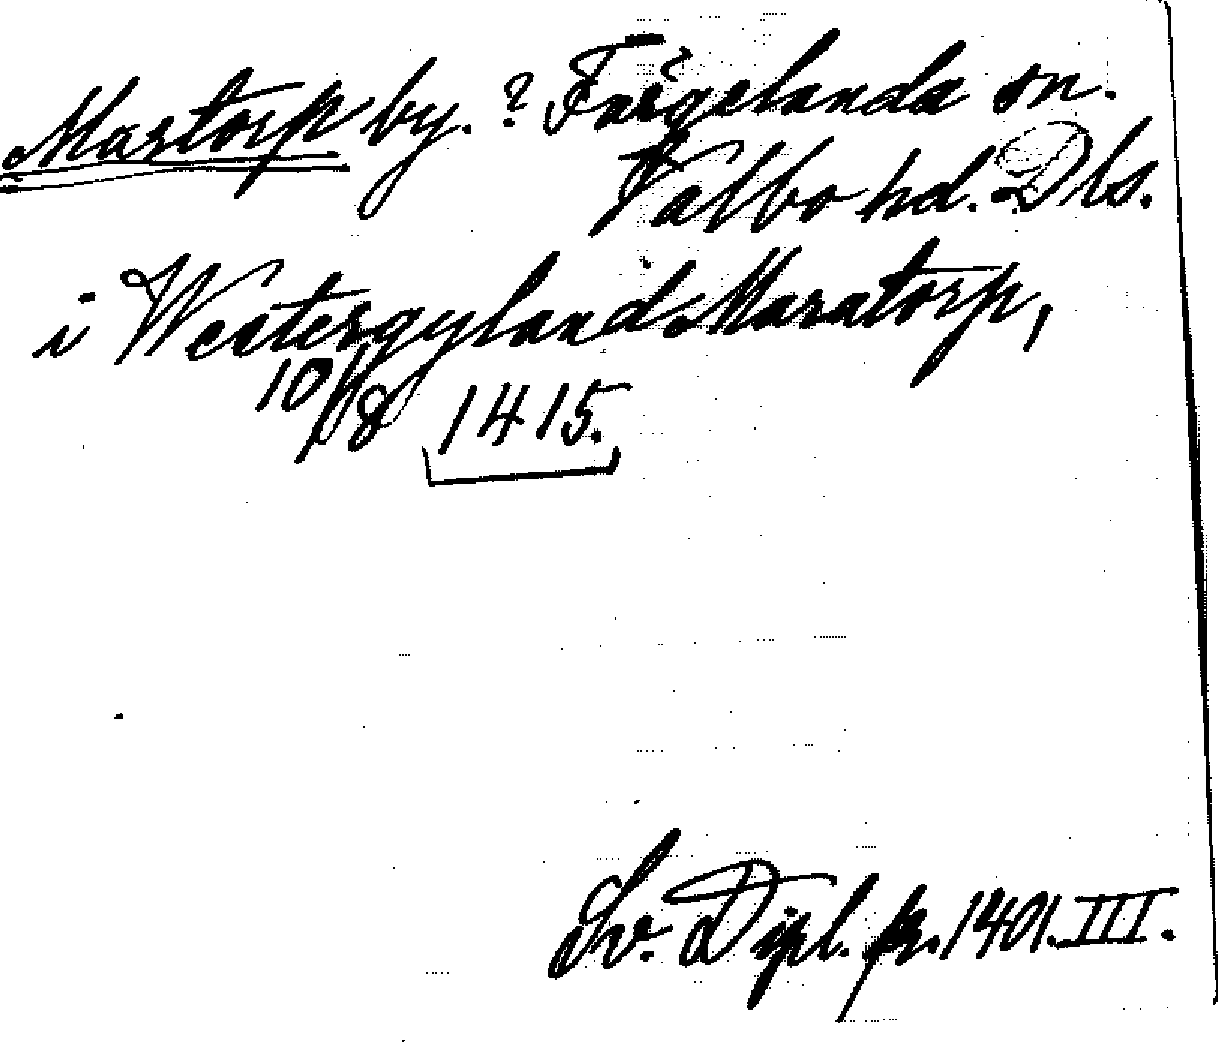 Mastorp by. ? Färgelanda sn.
Valbo hd. Dls.
i Westergyland Maratorp,
10/8 1415.
Sv. Dipl. fr. 1401. III.